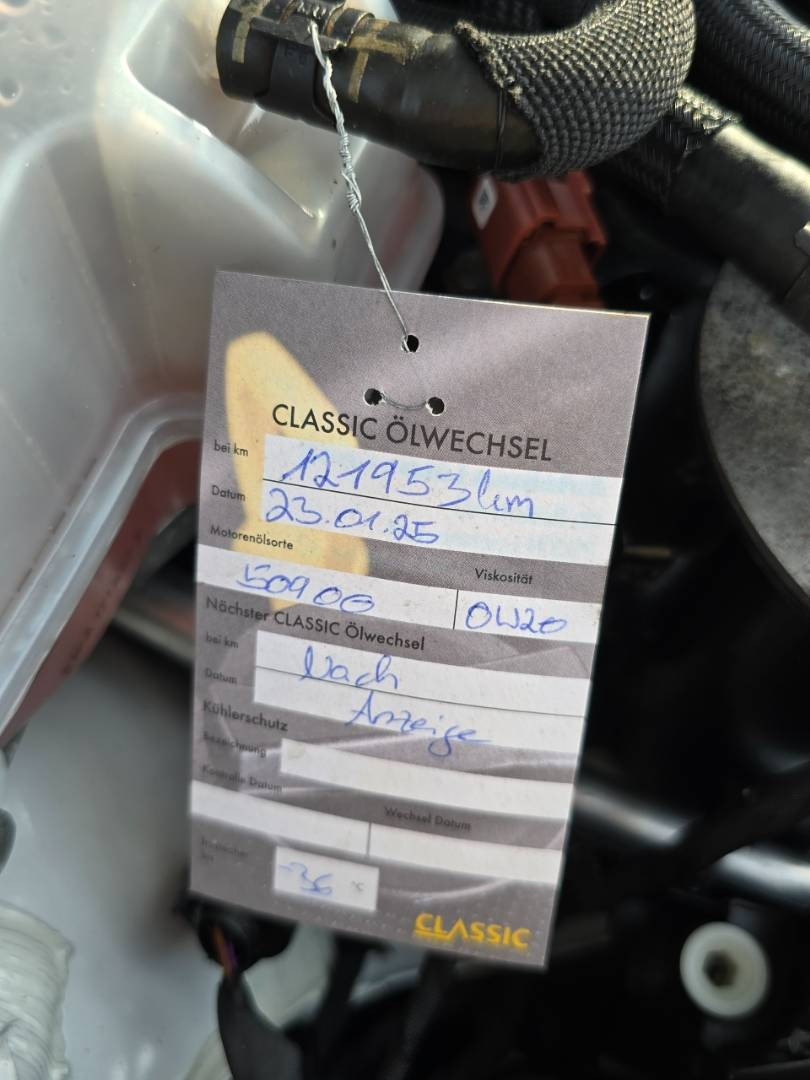 CLASSIC ÖLWECHSEL
bei km 121953 km
Datum 23.01.25
Motorenölsorte Viskosität
50900 0W20
Nächster CLASSIC Ölwechsel
bei km Nach
Datum Anzeige
Kühlerschutz
Bezeichnung
Kontrolle Datum Wechsel Datum
-36 °C
CLASSIC